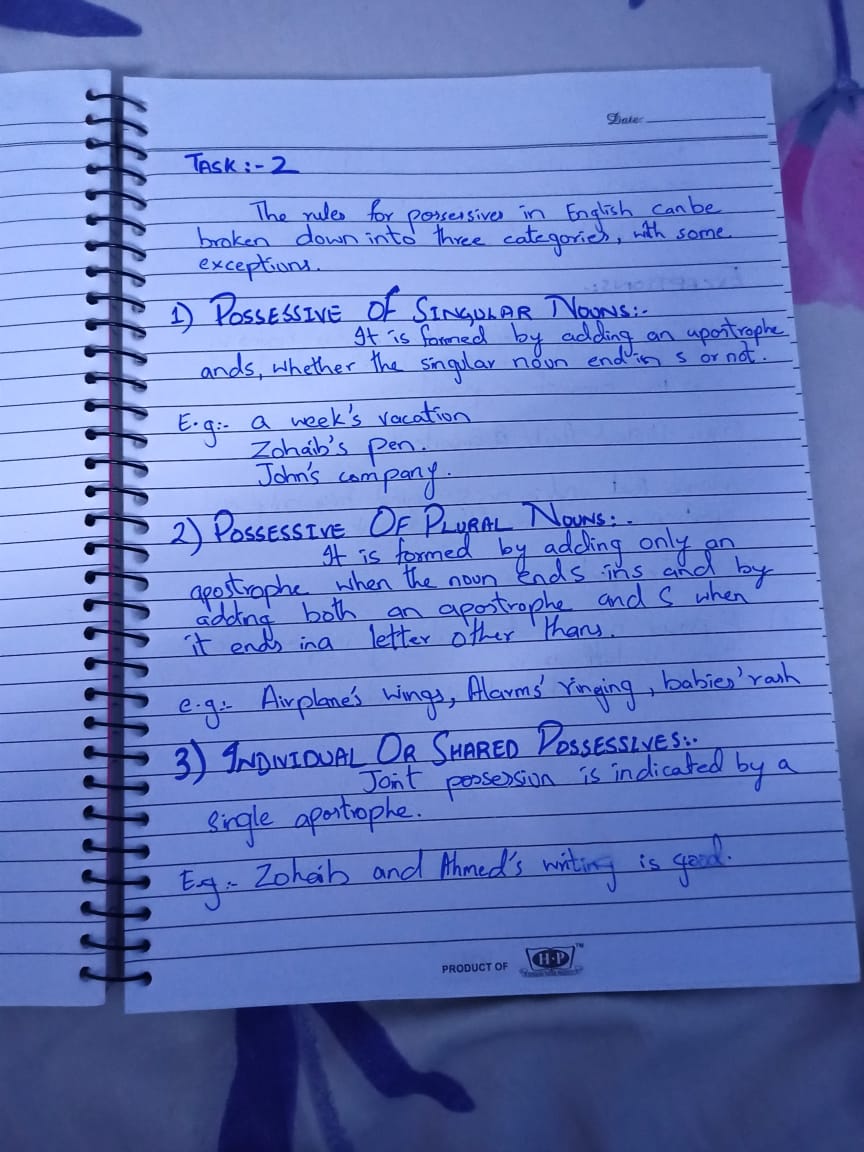 Date:
TASK :- 2
The rules for possessives in English can be
broken down into three categories, with some
exceptions.
1) POSSESSIVE OF SINGULAR NOUNS:-
It is formed by adding an apostrophe
and s, whether the singular noun end in s or not.
E.g:- a week's vacation
Zohaib's pen.
John's company.
2) POSSESSIVE OF PLURAL NOUNS:-
It is formed by adding only an
apostrophe when the noun ends in s and by
adding both an apostrophe and S when
it ends in a letter other than s.
e.g:- Airplane's wings, Alarms' ringing, babies' rash
3) INDIVIDUAL OR SHARED POSSESSIVES:-
Joint possession is indicated by a
single apostrophe.
E.g:- Zohaib and Ahmed's writing is good.
PRODUCT OF H·P ™